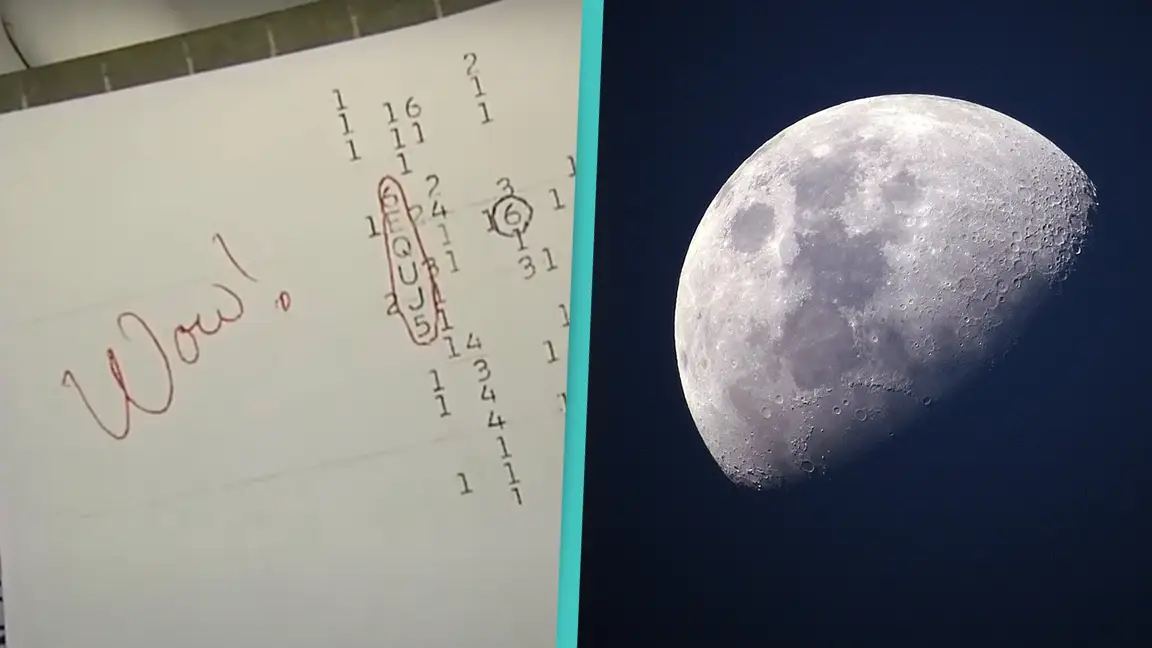 1 2
1 16 1
1 11 1
1
6 2
1 E 2 4 3 1
Q 1 1 6 1
U 3 1 1
Wow!
2 J 1 3 1
5 1
1 4 1
1 3 1
1 4
4 1
1
1 1
1